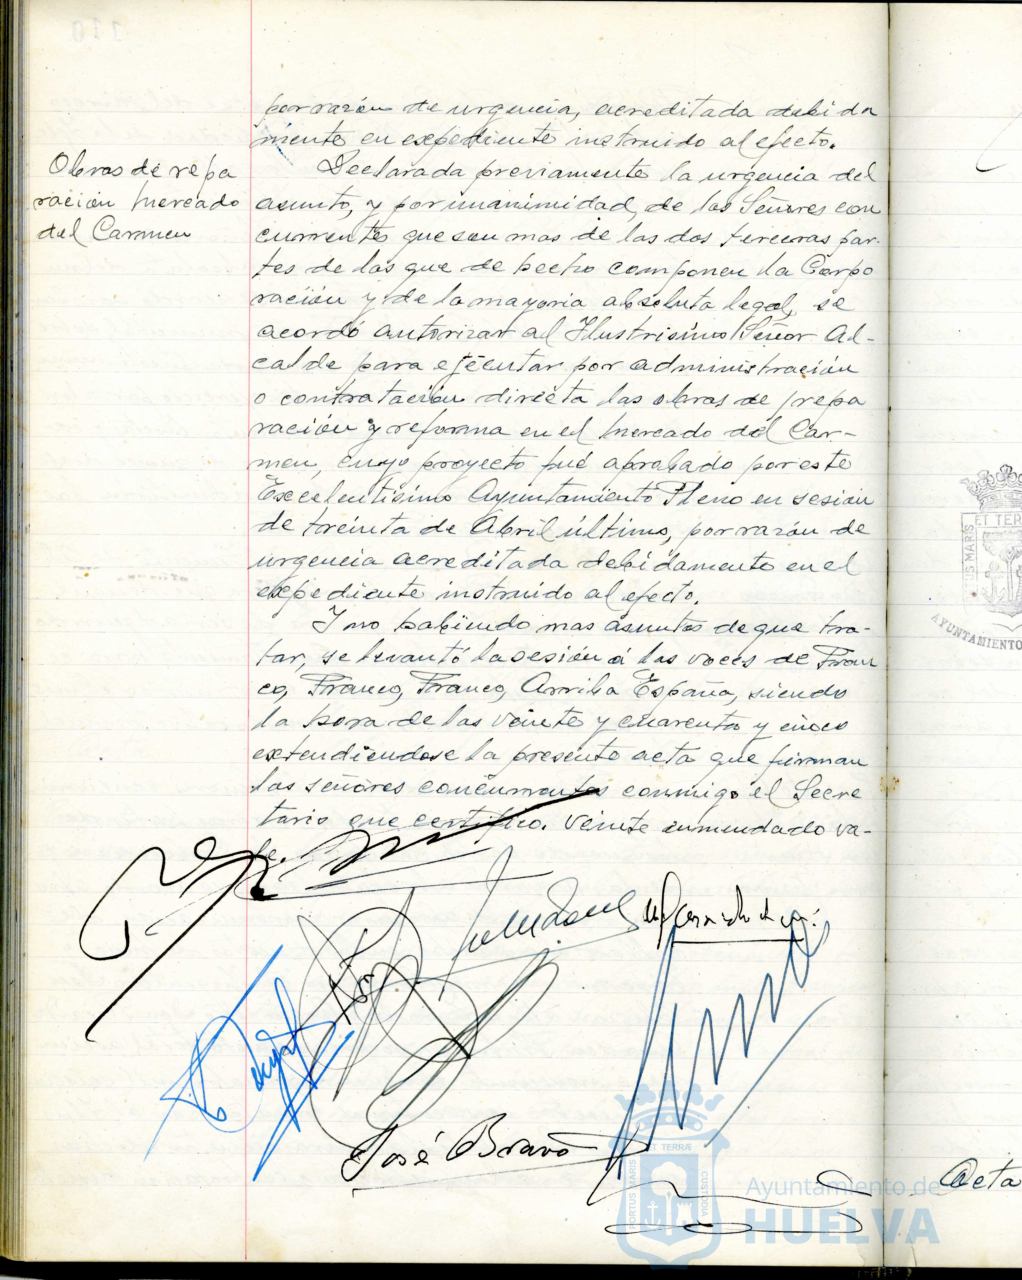 por razón de urgencia, acreditada debida
mente en expediente instruido al efecto.
Obras de repa
ración Mercado
del Carmen
Declarada previamente la urgencia del
asunto, y por unanimidad, de los Señores con
currentes que son mas de las dos terceras par-
tes de los que de hecho componen la Corpo
ración y de la mayoria absoluta legal, se
acordó autorizar al Ilustrisimo Señor Al-
calde para ejecutar por administración
o contratación directa las obras de repa
ración y reforma en el Mercado del Car-
men, cuyo proyecto fué aprobado por este
Excelentisimo Ayuntamiento Pleno en sesión
de treinta de Abril último, por razón de
urgencia acreditada debidamente en el
expediente instruido al efecto.
Y no habiendo mas asuntos de que tra-
tar, se levantó la sesión á las voces de Fran
co, Franco, Franco, Arriba España, siendo
la hora de las veinte y cuarenta y cinco
extendiendose la presente acta que firman
los señores concurrentes conmigo el Secre
tario que certifico. Veinte enmendado va-
le.
José Bravo
Acta
ET TERRÆ
PORTUS MARIS
CUSTODIA
Ayuntamiento de
HUELVA
ET TERR
US MARIS
AYUNTAMIENTO